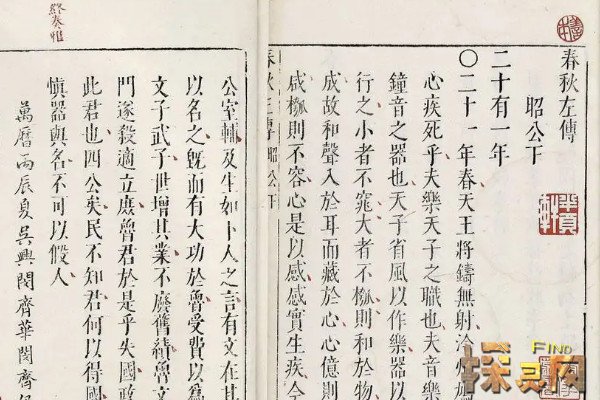 春秋左傳
昭公下
二十有一年
〇二十一年春天王將鑄無射泠州鳩
心疾死乎夫樂天子之職也夫音樂
鐘音之器也天子省風以作樂器以
行之小者不窕大者不槬則和於物
成故和聲入於耳而藏於心心億則
咸槬則不容心是以感感實生疾今
春秋左傳 昭公下
公室輔及生如卜人之言有文在其
以名之既而有大功於魯受費以為
文子武子世增其業不廢舊績魯文
門遂殺適立庶魯君於是乎失國政
此君也四公矣民不知君何以得國
慎器與名不可以假人
萬曆丙辰夏吳興閔齊華閔齊伋
終奏雅
FIND
探灵网